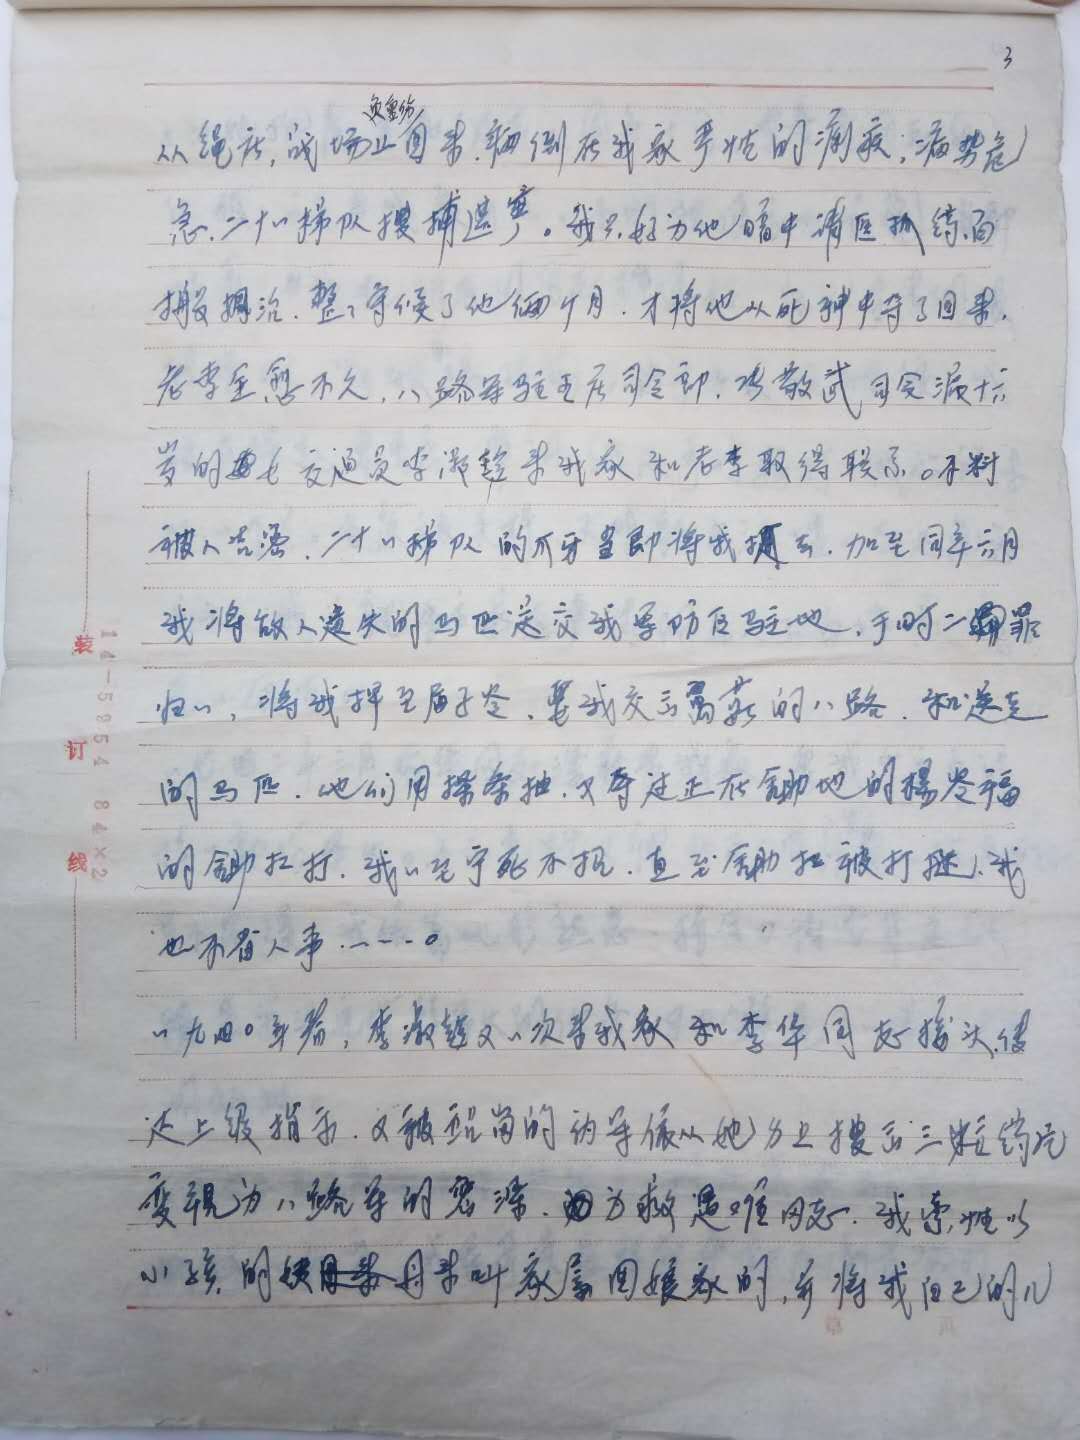 3
负重伤
从绳庄,战场上回来.病倒在我家严性的痢疾;病势危
急.二十一梯队搜捕遇严。我只好为他暗中请医抓药.百
般调治.整々守候了他俩个月.才将他从死神中夺了回来.
老李全愈不久,八路军驻王庄司令部.张敬武司令派十六
岁的女交通员李淑超来我家和老李取得联系。不料
被人告密.二十一梯队的爪牙当即将我抓去.加至同年六月
我将敌人遗失的马匹送交我军防区驻地.于时二罪
归一,将我押至庙子峑,要我交出窝藏的八路.和送走
的马匹.他们用搽条抽.又夺过正在锄地的杨峑福
的锄扛打.我一至宁死不招.直至锄扛被打断.我
也不省人事·---。
一九四〇年春,李淑超又一次来我家和李华同志接头.传
达上级指示.又被站岗的伪军依从她身上搜出三粒药丸
变视为八路军的密探.为救遇难同志.我索性以
小孩的 舅来叫家属回娘家的,并将我自己的儿
装
订
线
14-5954 84×2